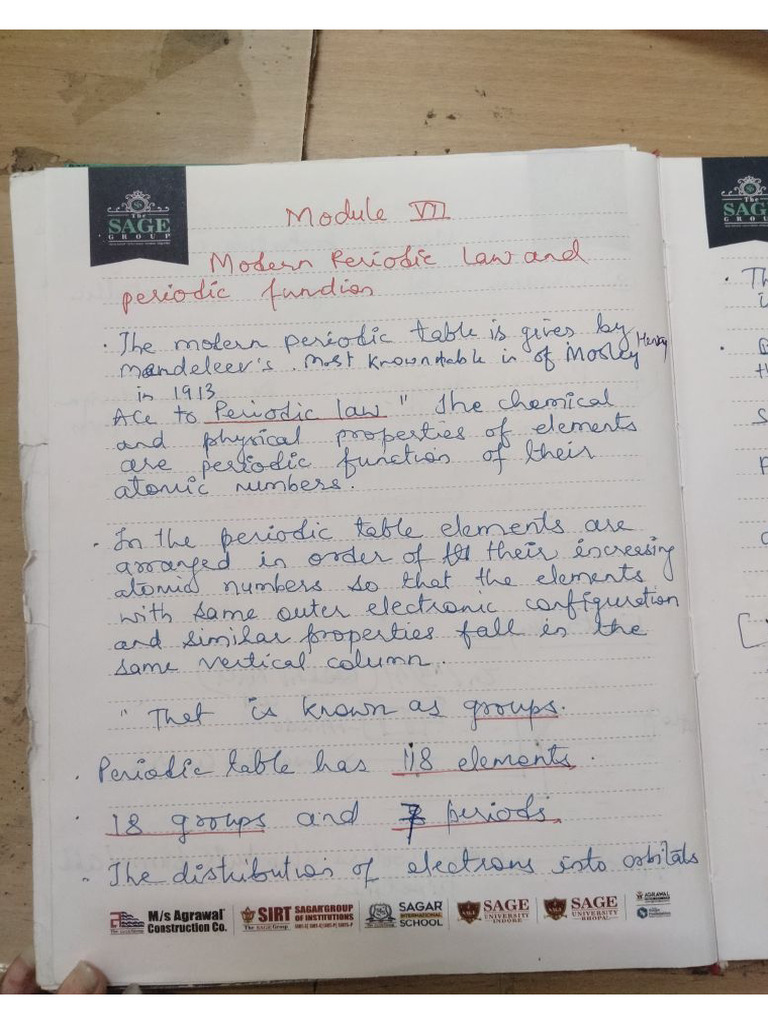 The
SAGE
GROUP
Module VII
Modern Periodic Law and
periodic function
• The modern periodic table is given by
mendeleev's. Most known table is of Henry Mosley
in 1913
Acc to Periodic law " The chemical
and physical properties of elements
are periodic function of their
atomic numbers.
• In the periodic table elements are
arranged in order of their increasing
atomic numbers so that the elements
with same outer electronic configuration
and similar properties fall in the
same vertical column.
" That is known as groups.
• Periodic table has 118 elements.
• 18 groups and 7 periods.
• The distribution of electrons into orbitals
M/s Agrawal Construction Co.
SIRT SAGAR GROUP OF INSTITUTIONS
The SAGE Group
SAGAR INTERNATIONAL SCHOOL
SAGE UNIVERSITY INDORE
SAGE UNIVERSITY BHOPAL
AGRAWAL